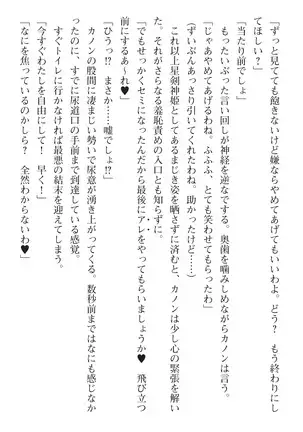 『ずっと見てても飽きないけど嫌ならやめてあげてもいいわよ。どう？　もう終わりにし
てほしい？』
「当たり前でしょ」
　もったいぶった言い回しが神経を逆なでする。奥歯を噛みしめながらカノンは言う。
『じゃあやめてあげるわね。ふふふ、とても笑わせてもらったわ』
（ずいぶんあっさり引いてくれたわね。助かったけど……）
　これ以上星剣神姫にあるまじき姿を晒さずに済むと、カノンは少し心の緊張を解い
た。それがさらなる羞恥責めの入口とも知らずに。
『でもせっかくセミになったんだから最後にアレをやってもらいましょうか♥　飛び立つ
前にするあ～れ♥』
「ひうっ⁉　まさか……嘘でしょ⁉」
　カノンの股間に凄まじい勢いで尿意が湧き上がってくる。数秒前まではなにも感じなか
ったのに、すでに尿道口の手前まで到達している感覚。
　すぐトイレに行かなければ最悪の結末を迎えてしまう。
「今すぐわたしを自由にして！　早く！」
『なにを焦っているのかしら？　全然わからないわ♥』